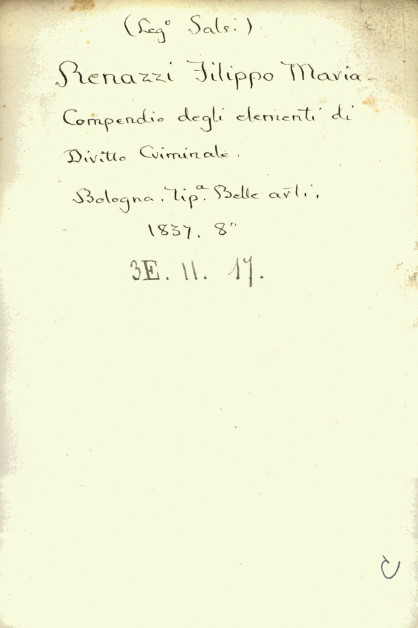 (Leg.º Salv.)
Renazzi Filippo Maria -
Compendio degli elementi di
Diritto Criminale.
Bologna. Tip.ª Belle arti.
1837. 8º
3E. II. 17.
C